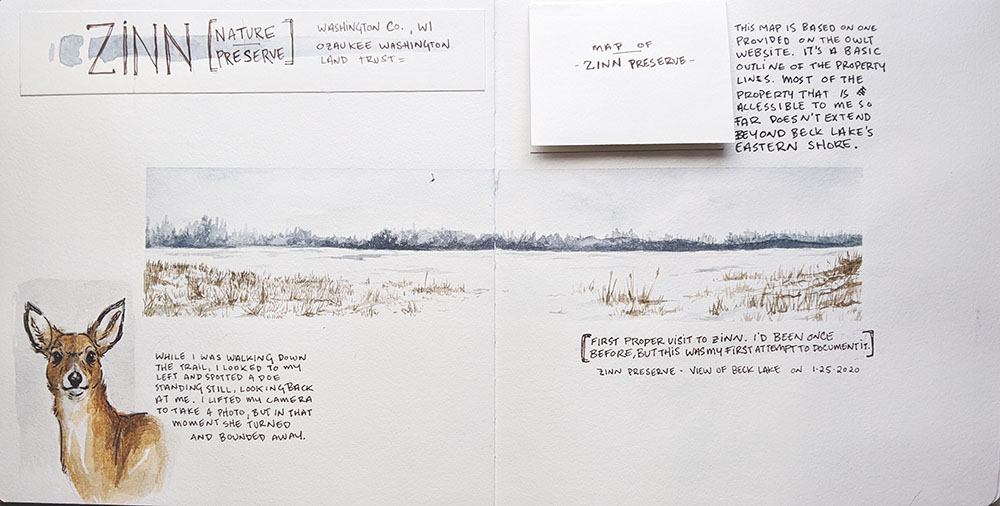 ZINN [NATURE
PRESERVE]
WASHINGTON CO., WI
OZAUKEE WASHINGTON
LAND TRUST =
MAP OF
- ZINN PRESERVE -
THIS MAP IS BASED ON ONE
PROVIDED ON THE OWLT
WEBSITE. IT'S A BASIC
OUTLINE OF THE PROPERTY
LINES. MOST OF THE
PROPERTY THAT IS
ACCESSIBLE TO ME SO
FAR DOESN'T EXTEND
BEYOND BECK LAKE'S
EASTERN SHORE.
[FIRST PROPER VISIT TO ZINN. I'D BEEN ONCE
BEFORE, BUT THIS WAS MY FIRST ATTEMPT TO DOCUMENT IT.]
ZINN PRESERVE - VIEW OF BECK LAKE ON 1-25-2020
WHILE I WAS WALKING DOWN
THE TRAIL, I LOOKED TO MY
LEFT AND SPOTTED A DOE
STANDING STILL, LOOKING BACK
AT ME. I LIFTED MY CAMERA
TO TAKE A PHOTO, BUT IN THAT
MOMENT SHE TURNED
AND BOUNDED AWAY.